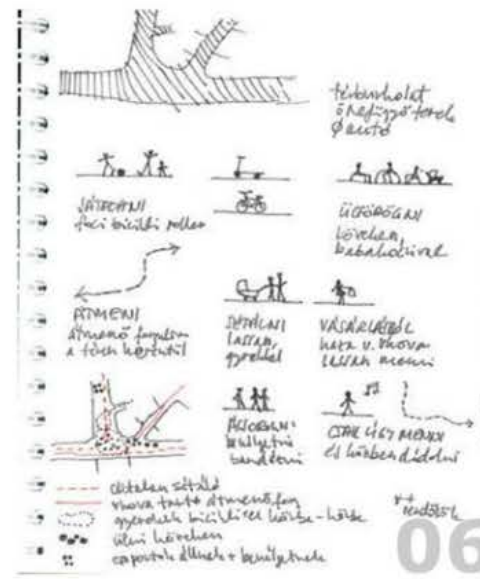 térburkolat
összefüggő terek
Ø autó
JÁTSZANI
foci bicikli roller
ÜCSÖRÖGNI
kövecken,
babakocsival
ÁTMENNI
átmenő forgalom
a téren keresztül
SÉTÁLNI
lassan,
gyerekkel
VÁSÁRLÁSBÓL
haza v. máshova
lassan menni
ÁCSOROGNI
beszélgetni
bandázni
CSAK ÚGY MENNI
és közben dúdolni
céltalan sétáló
máshova tartó átmenőforg
gyerekek biciklivel körbe-körbe
ülni
csoportok állnak + beszélgetnek
06